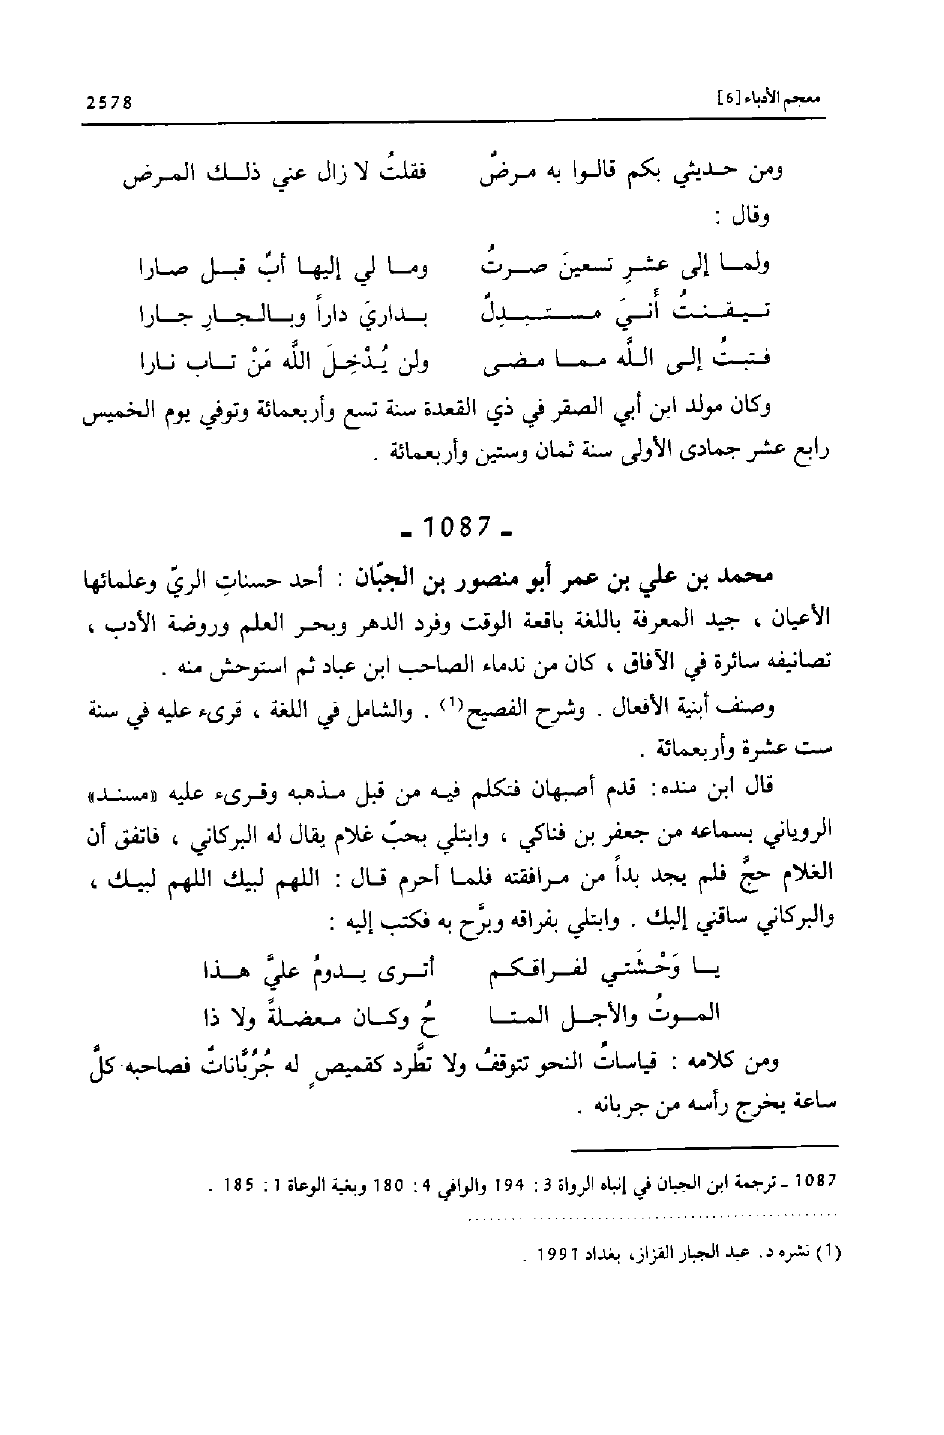 معجم الأدباء [6] 2578
ومن حديثي بكم قالوا به مرضٌ فقلتُ لا زال عني ذلك المرض
وقال :
ولما إلى عشرِ تسعينَ صرتُ وما لي إليها أبٌ قبل صارا
تيقنتُ أنيَ مستبدلٌ بداريَ داراً وبالجار جارا
فتبتُ إلى اللَّه مما مضى ولن يُدْخِلَ اللَّه مَنْ تاب نارا
وكان مولد ابن أبي الصقر في ذي القعدة سنة تسع وأربعمائة وتوفي يوم الخميس
رابع عشر جمادى الأولى سنة ثمان وستين وأربعمائة .
ـ 1087 ـ
محمد بن علي بن عمر أبو منصور بن الجبّان : أحد حسنات الريّ وعلمائها
الأعيان ، جيد المعرفة باللغة باقعة الوقت وفرد الدهر وبحر العلم وروضة الأدب ،
تصانيفه سائرة في الآفاق ، كان من ندماء الصاحب ابن عباد ثم استوحش منه .
وصنف أبنية الأفعال . وشرح الفصيح(1) . والشامل في اللغة ، قرىء عليه في سنة
ست عشرة وأربعمائة .
قال ابن منده: قدم أصبهان فتكلم فيه من قبل مذهبه وقرىء عليه «مسند»
الروياني بسماعه من جعفر بن فناكي ، وابتلي بحبّ غلام يقال له البركاني ، فاتفق أن
الغلام حجَّ فلم يجد بدأً من مرافقته فلما أحرم قال : اللهم لبيك اللهم لبيك ،
والبركاني ساقني إليك . وابتلي بفراقه وبرَّح به فكتب إليه :
يا وَحْشَتي لفراقكم أترى يدومُ عليَّ هذا
الموتُ والأجل المتا حُ وكان معضلةً ولا ذا
ومن كلامه : قياساتُ النحو تتوقفُ ولا تطَّرد كقميصٍ له جُرُبَّاناتٌ فصاحبه كلَّ
ساعة يخرج رأسه من جربانه .
1087 ـ ترجمة ابن الجبان في إنباه الرواة 3: 194 والوافي 4: 180 وبغية الوعاة 1: 185 .
(1) نشره د. عبد الجبار القزاز، بغداد 1991 .